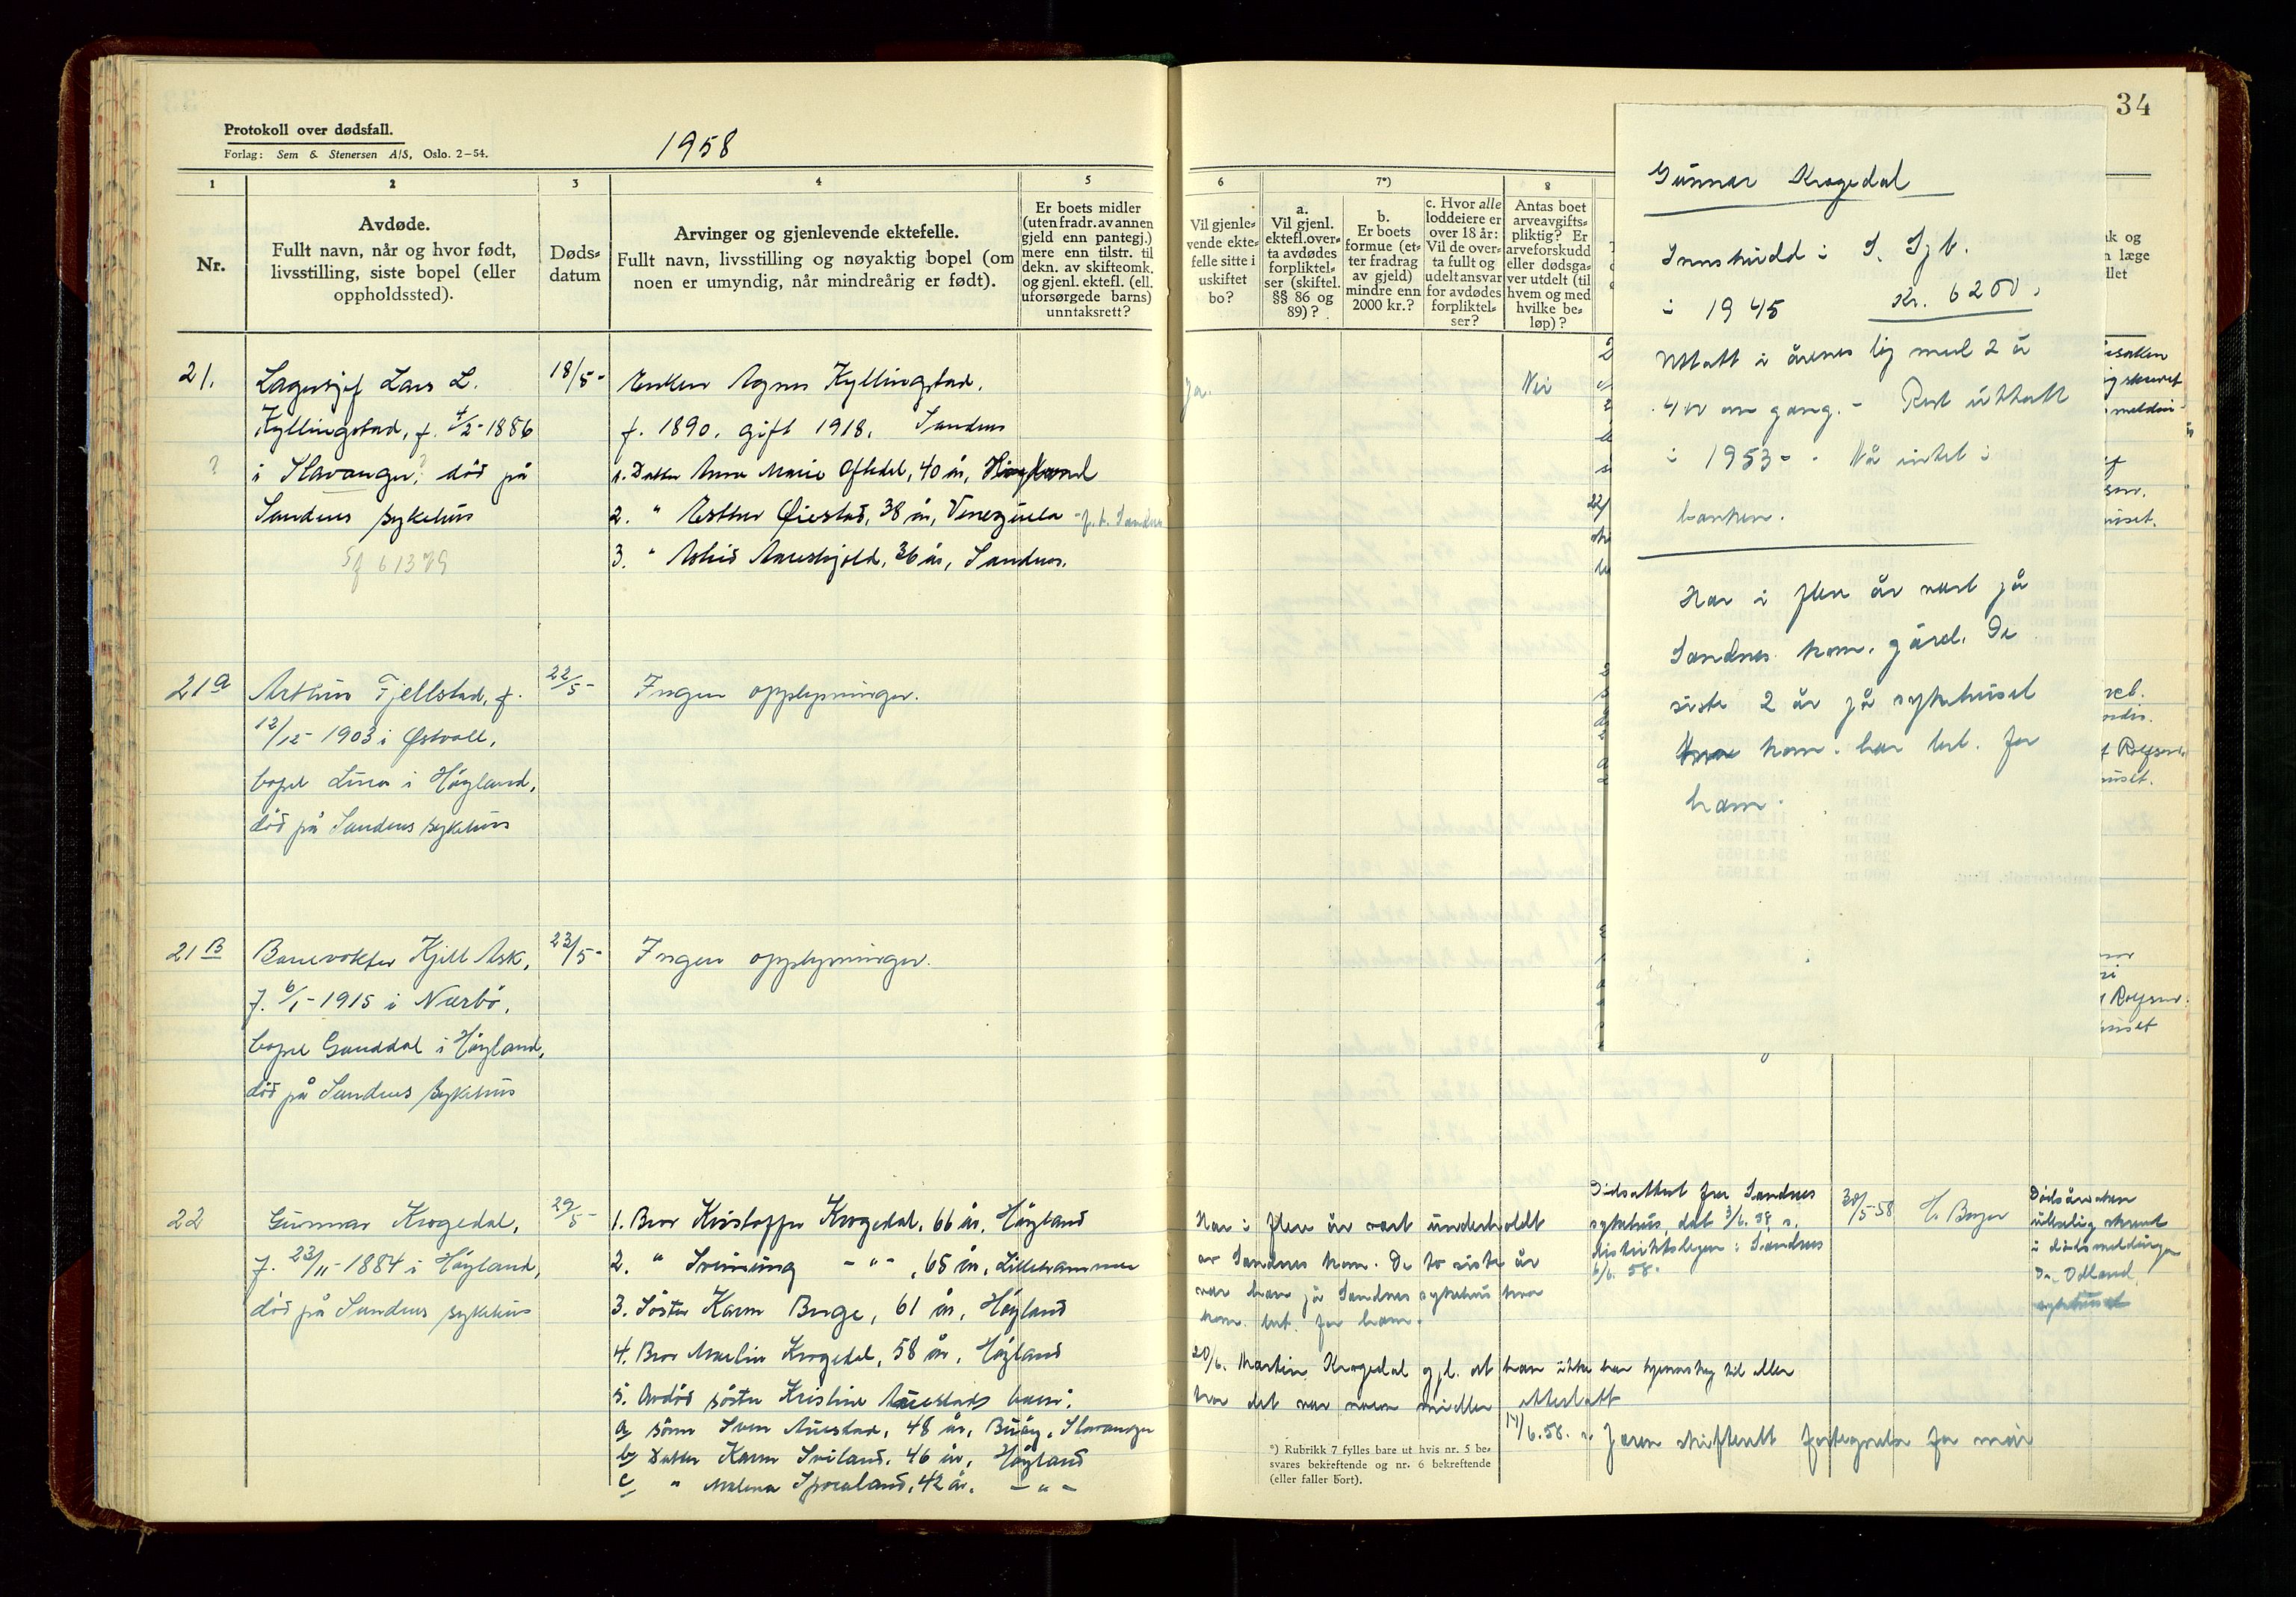 Protokoll over dødsfall.
Forlag: Sem & Stenersen A/S, Oslo. 2-54.
1958
1
2
3
4
5
Nr.
Avdøde.
Fullt navn, når og hvor født,
livsstilling, siste bopel (eller
oppholdssted).
Døds-
datum
Arvinger og gjenlevende ektefelle.
Fullt navn, livsstilling og nøyaktig bopel (om
noen er umyndig, når mindreårig er født).
Er boets midler
(uten fradr. av annen
gjeld enn pantegj.)
mere enn tilstr. til
dekn. av skifteomk.
og gjenl. ektefl. (ell.
uforsørgede barns)
unntaksrett?
21.
Lagersjef Lars L.
Kyllingstad, f. 4/2-1886
? i Stavanger? død på
Sandnes sykehus
18/5-
Enken Agnes Kyllingstad,
f. 1890, gift 1918, Sandnes
1. Datter Anna Marie Oftedal, 40 år, Høyland
2. " Esther Øiestad, 38 år, Venezuela - p.t. Sandnes
3. " Astrid Aareskjold, 36 år, Sandnes.
21a
Arthur Fjellstad, f.
12/12-1903 i Østvoll,
bopel Lura i Høyland,
død på Sandnes sykehus
22/5-
Ingen opplysninger.
21B
Banevokter Kjell Ask,
f. 6/1-1915 i Nærbø,
bopel Ganddal i Høyland,
død på Sandnes sykehus
23/5-
Ingen opplysninger.
22
Gunnar Krogedal,
f. 23/11-1884 i Høyland,
død på Sandnes sykehus
29/5-
1. Bror Kristoffer Krogedal, 66 år, Høyland
2. " Sveinung -"-, 65 år, Lillehammer
3. Søster Karen Berge, 61 år, Høyland
4. Bror Martin Krogedal, 58 år, Høyland
5. Avdød søster Kristine Auestads barn:
a sønn Sven Auestad, 48 år, Buøy, Stavanger
b Datter Karen Sviland, 46 år, Høyland
c " Malena 42 år, -"-
34
6
7*)
8
Vil gjenle-
vende ekte-
felle sitte i
uskiftet
bo?
a.
Vil gjenl.
ektefl. over-
ta avdødes
forpliktel-
ser (skiftel.
§§ 86 og
89)?
b.
Er boets
formue (et-
ter fradrag
av gjeld)
mindre enn
2000 kr.?
c. Hvor alle
loddeiere er
over 18 år:
Vil de over-
ta fullt og
udelt ansvar
for avdødes
forpliktel-
ser?
Antas boet
arveavgifts-
pliktig? Er
arveforskudd
eller dødsga-
ver utdelt (til
hvem og med
hvilke be-
løp)?
Ja.
Nei
Gunnar Krogedal
Innskudd i S. Spb.
i 1945 Kr. 6200,
Uttatt i årenes løp med 2 à
400 om gang. - Rest uttatt
i 1953 - Nå intet i
banken.
Har i flere år vært på
Sandnes kom. gård. De
siste 2 år på sykehuset
kom. har bet. for
ham.
Har i flere år vært underholdt
av Sandnes kom. De to siste år
var han på Sandnes sykehus hvor
kom. bet. for ham.
20/6. Martin Krogedal oppl. at han ikke har kjennskap til eller
hvor det var noen midler etterlatt
Dødsattest fra Sandnes
sykehus dat 3/6. 58 s.
distriktslegen i Sandnes
6/6. 58.
30/5-58
H. Berger
Dødsårsaken
utførlig skrevet
i dødsmeldingen
Dr. Odland,
sykehuset
17/6. 58. Jæren skifterett fortegnelse for mai
*) Rubrikk 7 fylles bare ut hvis nr. 5 be-
svares bekreftende og nr. 6 bekreftende
(eller faller bort).